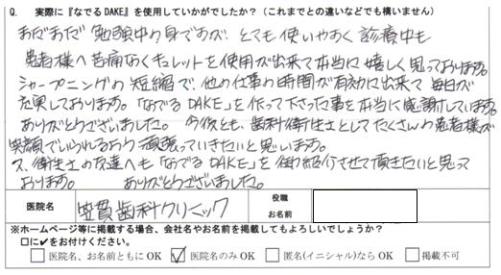 Q. 実際に『なでるDAKE』を使用していかがでしたか?（これまでとの違いなどでも構いません）
まだまだ勉強中の身ですが、とても使いやすく診療中も
患者様へ苦痛なくキュレットを使用が出来て本当に嬉しく思っております。
シャープニングの短縮で、他の仕事の時間が有効に出来て毎日が
充実しております。「なでるDAKE」を作って下さった事を本当に感謝しています。
ありがとうございました。今後とも、歯科衛生士としてたくさんの患者様が
笑顔でいられるよう頑張っていきたいと思います。
又、衛生士の友達へも「なでるDAKE」を御紹介させて頂きたいと思って
おります。 ありがとうございました。
医院名 笠貫歯科クリニック 役職
お名前
※ホームページ等に掲載する場合、会社名やお名前を掲載してもよろしいでしょうか?
□に✓をお付けください。
□医院名、お名前ともにOK ☑医院名のみOK □匿名(イニシャル)ならOK □掲載不可